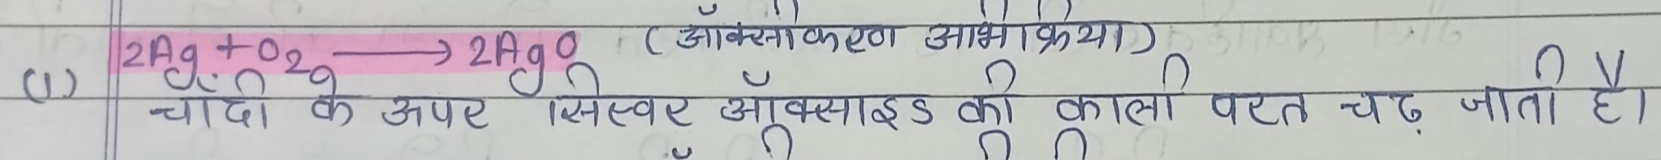 2Ag + O2 ⟶ 2AgO (ऑक्सीकरण अभिक्रिया)
(1) चाँदी के ऊपर सिल्वर ऑक्साइड की काली परत चढ़ जाती है।